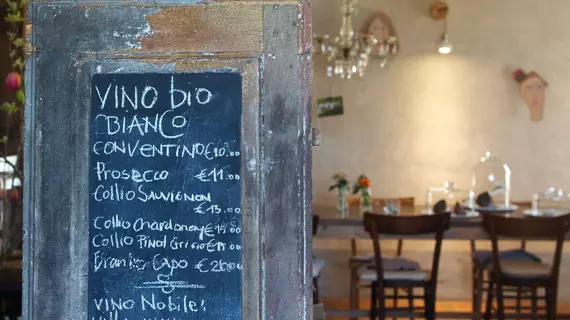 VINO biO
BIANCO
CONVENTINO €10.00
Prosecco €11.00
Collio Sauvignon
€15.00
Collio Chardonnay €15.00
Collio Pinot Grigio €15.00
Branko Capo €20.00
VINO Nobile!